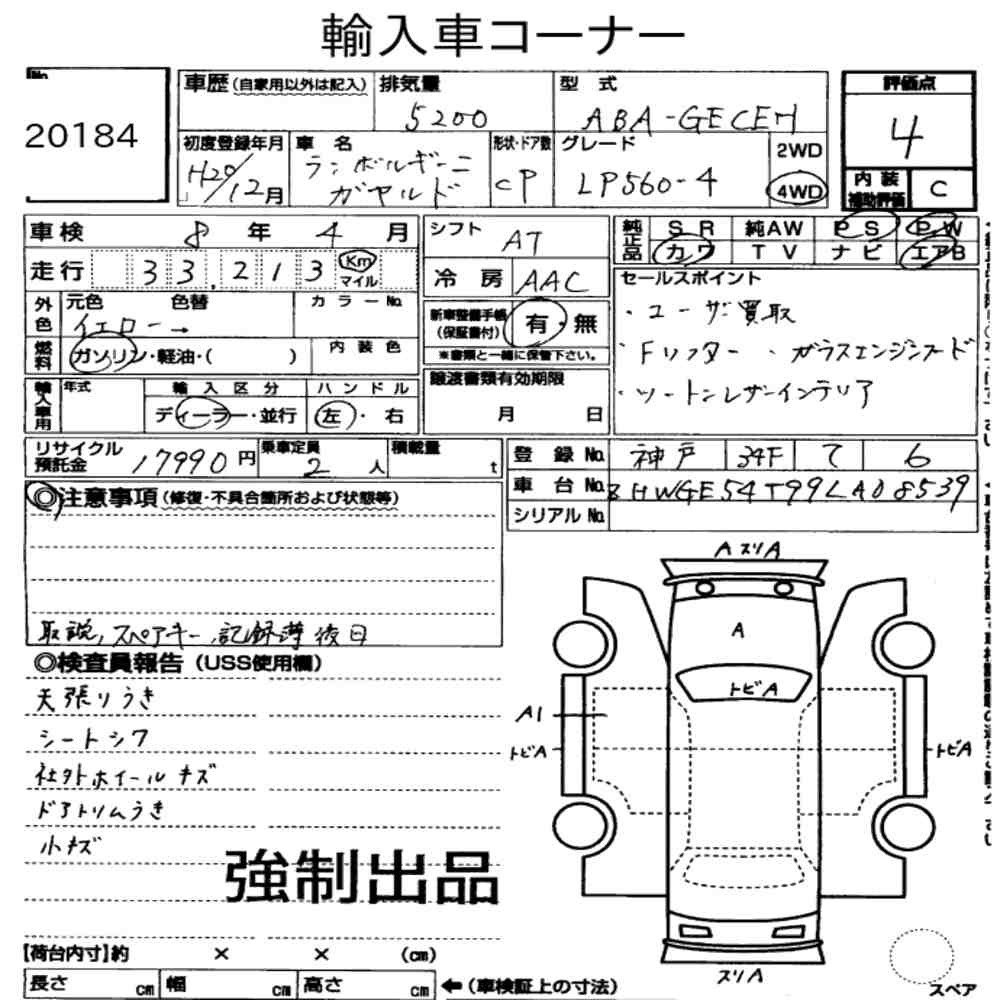 輸入車コーナー
No.
20184
車歴 (自家用以外は記入)
排気量
5200
型式
ABA-GECEH
評価点
4
初度登録年月
H20/12月
車名
ランボルギーニ
ガヤルド
形状・ドア数
CP
グレード
LP560-4
2WD
4WD
内装
補助評価
C
車検 8年 4月
走行 33,213 Km
マイル
シフト AT
冷房 AAC
純正品
SR 純AW PS PW
カワ TV ナビ エアB
外色
元色 色替 カラーNo.
イエロー→
新車整備手帳
(保証書付)
有・無
※書類と一緒に保管下さい。
セールスポイント
・ユーザ買取
・Fリフター ・ガラスエンジンフード
・ツートンレザーインテリア
燃料
ガソリン・軽油・( )
内装色
輸入車用
年式 輸入区分 ハンドル
ディーラー・並行 左・右
譲渡書類有効期限
月 日
リサイクル
預託金
17990円
乗車定員
2人
積載量
t
登録No. 神戸 34F て 6
車台No. ZHWGE54T99LA08539
シリアルNo.
◎注意事項 (修復・不具合箇所および状態等)
取説,スペアキー記録簿後日
◎検査員報告 (USS使用欄)
天張りうき
シートシワ
社外ホイールキズ
ドアトリムうき
小キズ
強制出品
AスリA
A
トビA
A1
トビA
トビA
スリA
スペア
【荷台内寸】約 × × (cm)
長さ cm 幅 cm 高さ cm ←(車検証上の寸法)